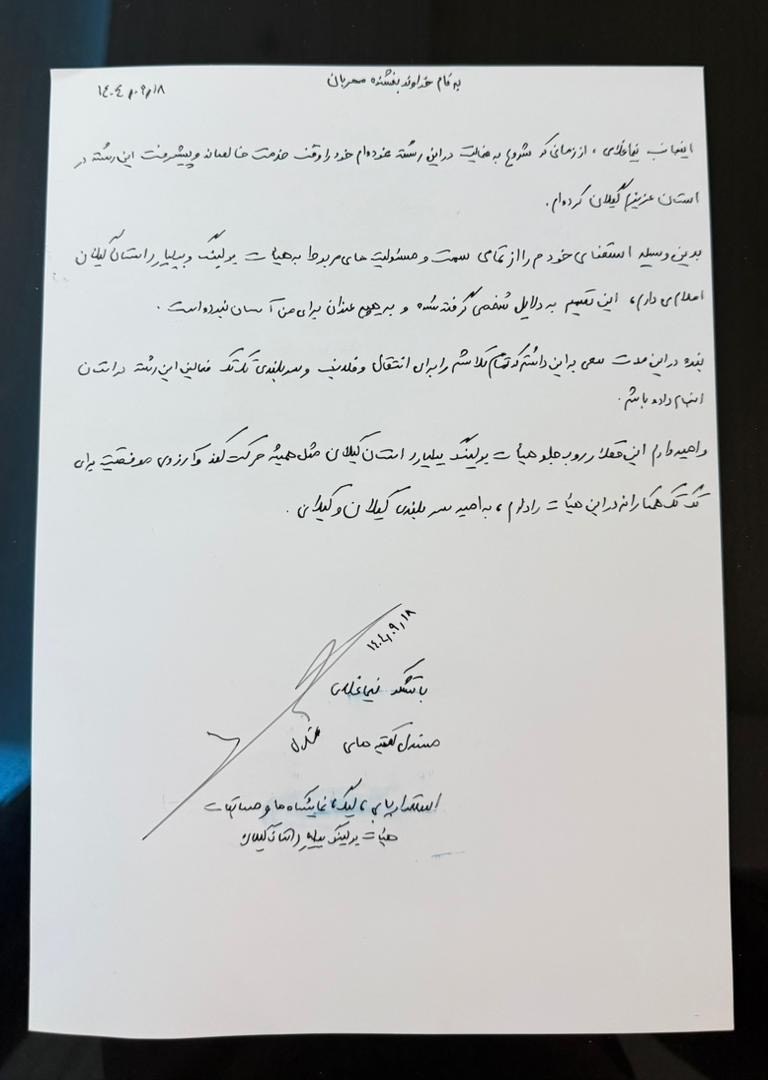 به نام خداوند بخشنده مهربان
۱۴۰۴/۰۹/۱۸
اینجانب نیما غلامی ، از زمانی که شروع به فعالیت در این رشته نموده‌ام خود را وقف خدمت خالصانه و پیشرفت این رشته در
استان عزیزم گیلان کرده‌ام.
بدین وسیله استعفای خودم را از تمامی سمت و مسئولیت های مربوط به هیات بولینگ و بیلیارد استان گیلان
اعلام می دارم، این تصمیم به دلایل شخصی گرفته شده و به هیچ عنوان برای من آسان نبوده است.
بنده در این مدت سعی به این داشتم که تمام تلاشم را برای انتقال و سربلندی تک تک فعالین این رشته در استان
انجام داده باشم.
و امیدوارم این قطار رو به جلو هیات بولینگ بیلیارد استان گیلان مثل همیشه حرکت کند و آرزوی موفقیت برای
تک تک همکارانم در این هیات را دارم ، به امید سربلندی گیلان و گیلانی .
۱۴۰۴/۰۹/۱۸
با تشکر نیما غلامی
مسئول کمیته های
استعدادیابی ، لیگ، نمایشگاه ها و مسابقات
هیات بولینگ بیلیارد استان گیلان